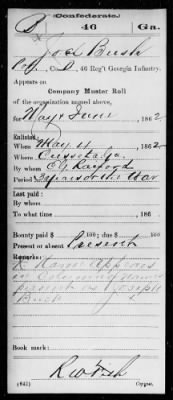 Confederate.
B 46 Ga.
Joel Bush
Co. D, 46 Reg't Georgia Infantry.
Appears on
Company Muster Roll
of the organization named above,
for May & June, 1862.
Enlisted:
When May 4, 1862
Where Cusseta, Ga.
By whom
Period 3 years or the War
Last paid:
By whom
To what time 186 .
Bounty paid $ 100; due $ 100
Present or absent Present
Remarks:
Name appears
in Column of Names
present as Joseph
Bush
Book mark:
(642) Copyist.